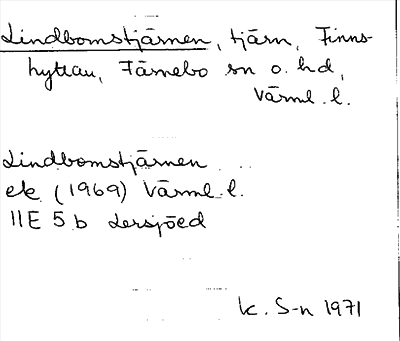 Lindbomstjärnen, tjärn, Finns-
hyttan, Färnebo sn o. hd,
Värml. l.
Lindbomstjärnen
ek (1969) Värml. l.
11E 5 b Lersjöed
k. S-n 1971